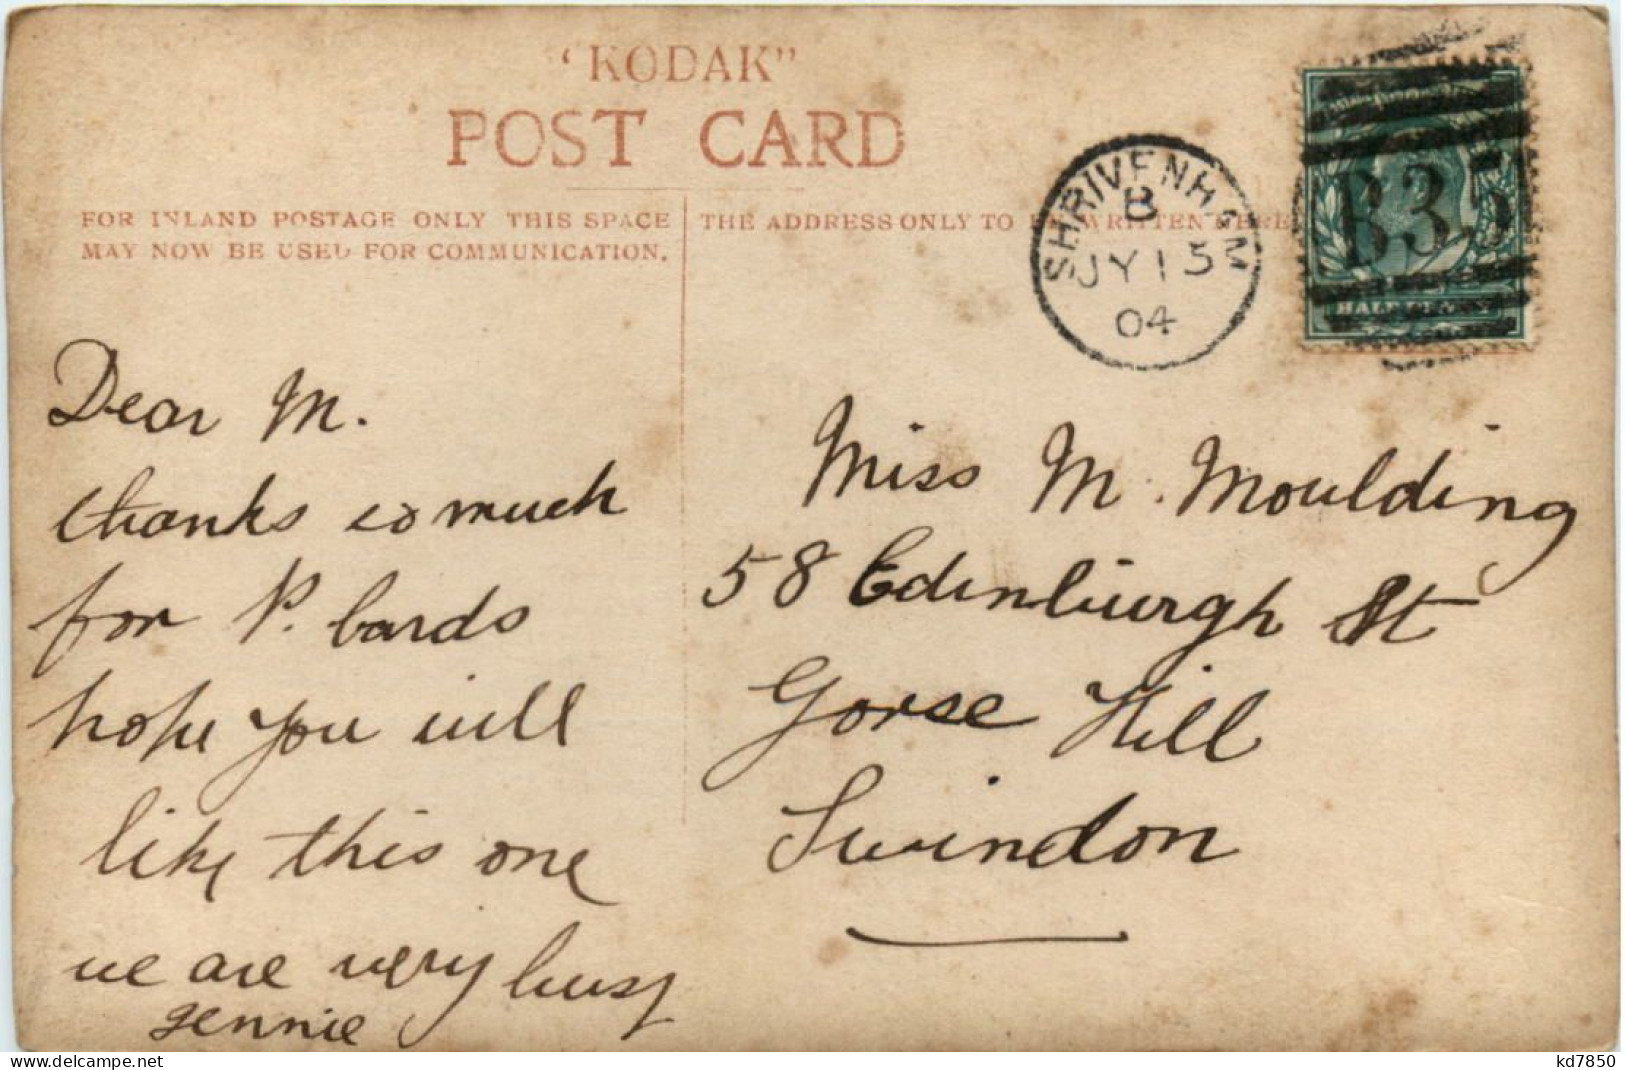 "KODAK"
POST CARD
FOR INLAND POSTAGE ONLY THIS SPACE
MAY NOW BE USED FOR COMMUNICATION.
THE ADDRESS ONLY TO BE WRITTEN HERE
SHRIVENHAM
B
JY 15
04
B35
HALFPENNY
Dear M.
thanks so much
for P. cards
hope you will
like this one
we are very busy
Jennie
Miss M. Moulding
58 Edinburgh St
Gorse Hill
Swindon
www.delcampe.net
kd7850